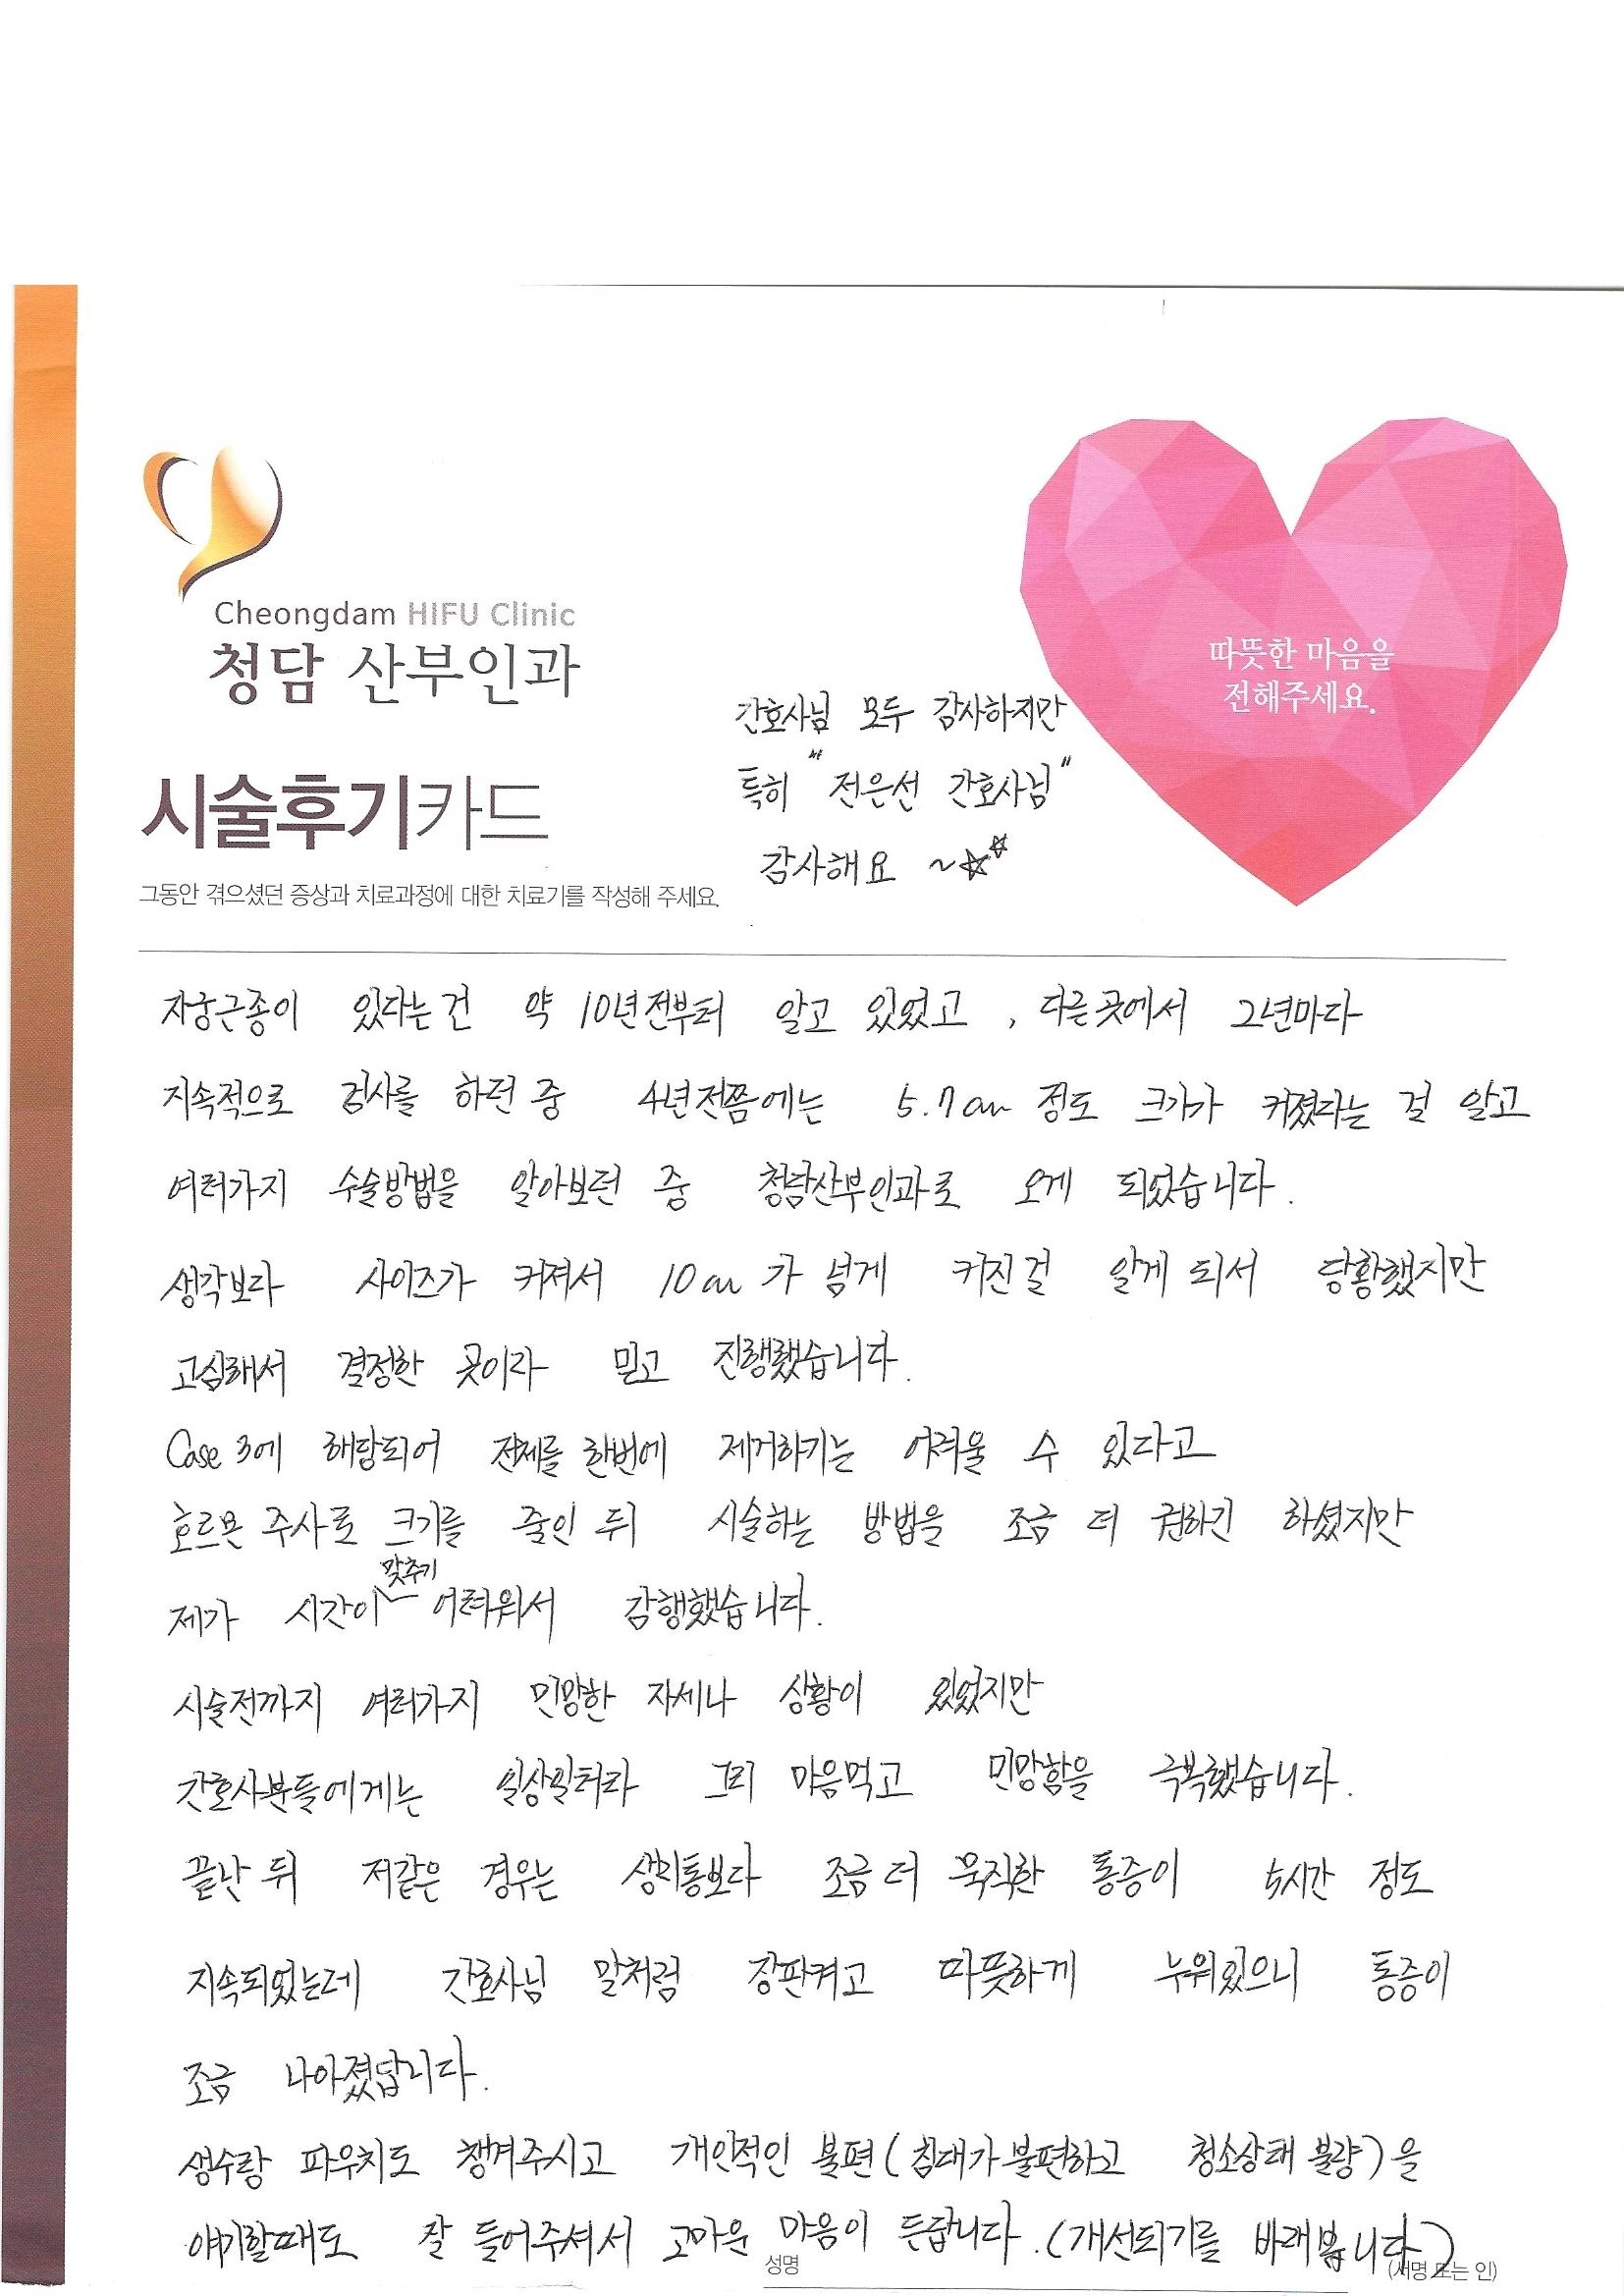 Cheongdam HIFU Clinic
청담 산부인과
따뜻한 마음을
전해주세요.
간호사님 모두 감사하지만
특히 "전은선 간호사님"
감사해요 ~☆☆
시술후기카드
그동안 겪으셨던 증상과 치료과정에 대한 치료기를 작성해 주세요.
자궁근종이 있다는건 약 10년전부터 알고 있었고, 다른곳에서 2년마다
지속적으로 검사를 하던 중 4년전쯤에는 5.7cm 정도 크기가 커졌다는 걸 알고
여러가지 수술방법을 알아보던 중 청담산부인과로 오게 되었습니다.
생각보다 사이즈가 커져서 10cm가 넘게 커진걸 알게 되서 당황했지만
고심해서 결정한 곳이라 믿고 진행했습니다.
Case 3에 해당되어 전체를 한번에 제거하기는 어려울 수 있다고
호르몬 주사로 크기를 줄인 뒤 시술하는 방법을 조금 더 권하긴 하셨지만
제가 시간이 맞추기 어려워서 감행했습니다.
시술전까지 여러가지 민망한 자세나 상황이 있었지만
간호사분들에게는 일상일터라 그리 마음먹고 민망함을 극복했습니다.
끝난 뒤 저같은 경우는 생리통보다 조금 더 묵직한 통증이 5시간 정도
지속되었는데 간호사님 말처럼 장판켜고 따뜻하게 누워있으니 통증이
조금 나아졌답니다.
생수랑 파우치도 챙겨주시고 개인적인 불편(침대가 불편하고 청소상태 불량)을
얘기할때도 잘 들어주셔서 고마운 마음이 든답니다.(개선되기를 바래봅니다)
성명 (서명 또는 인)